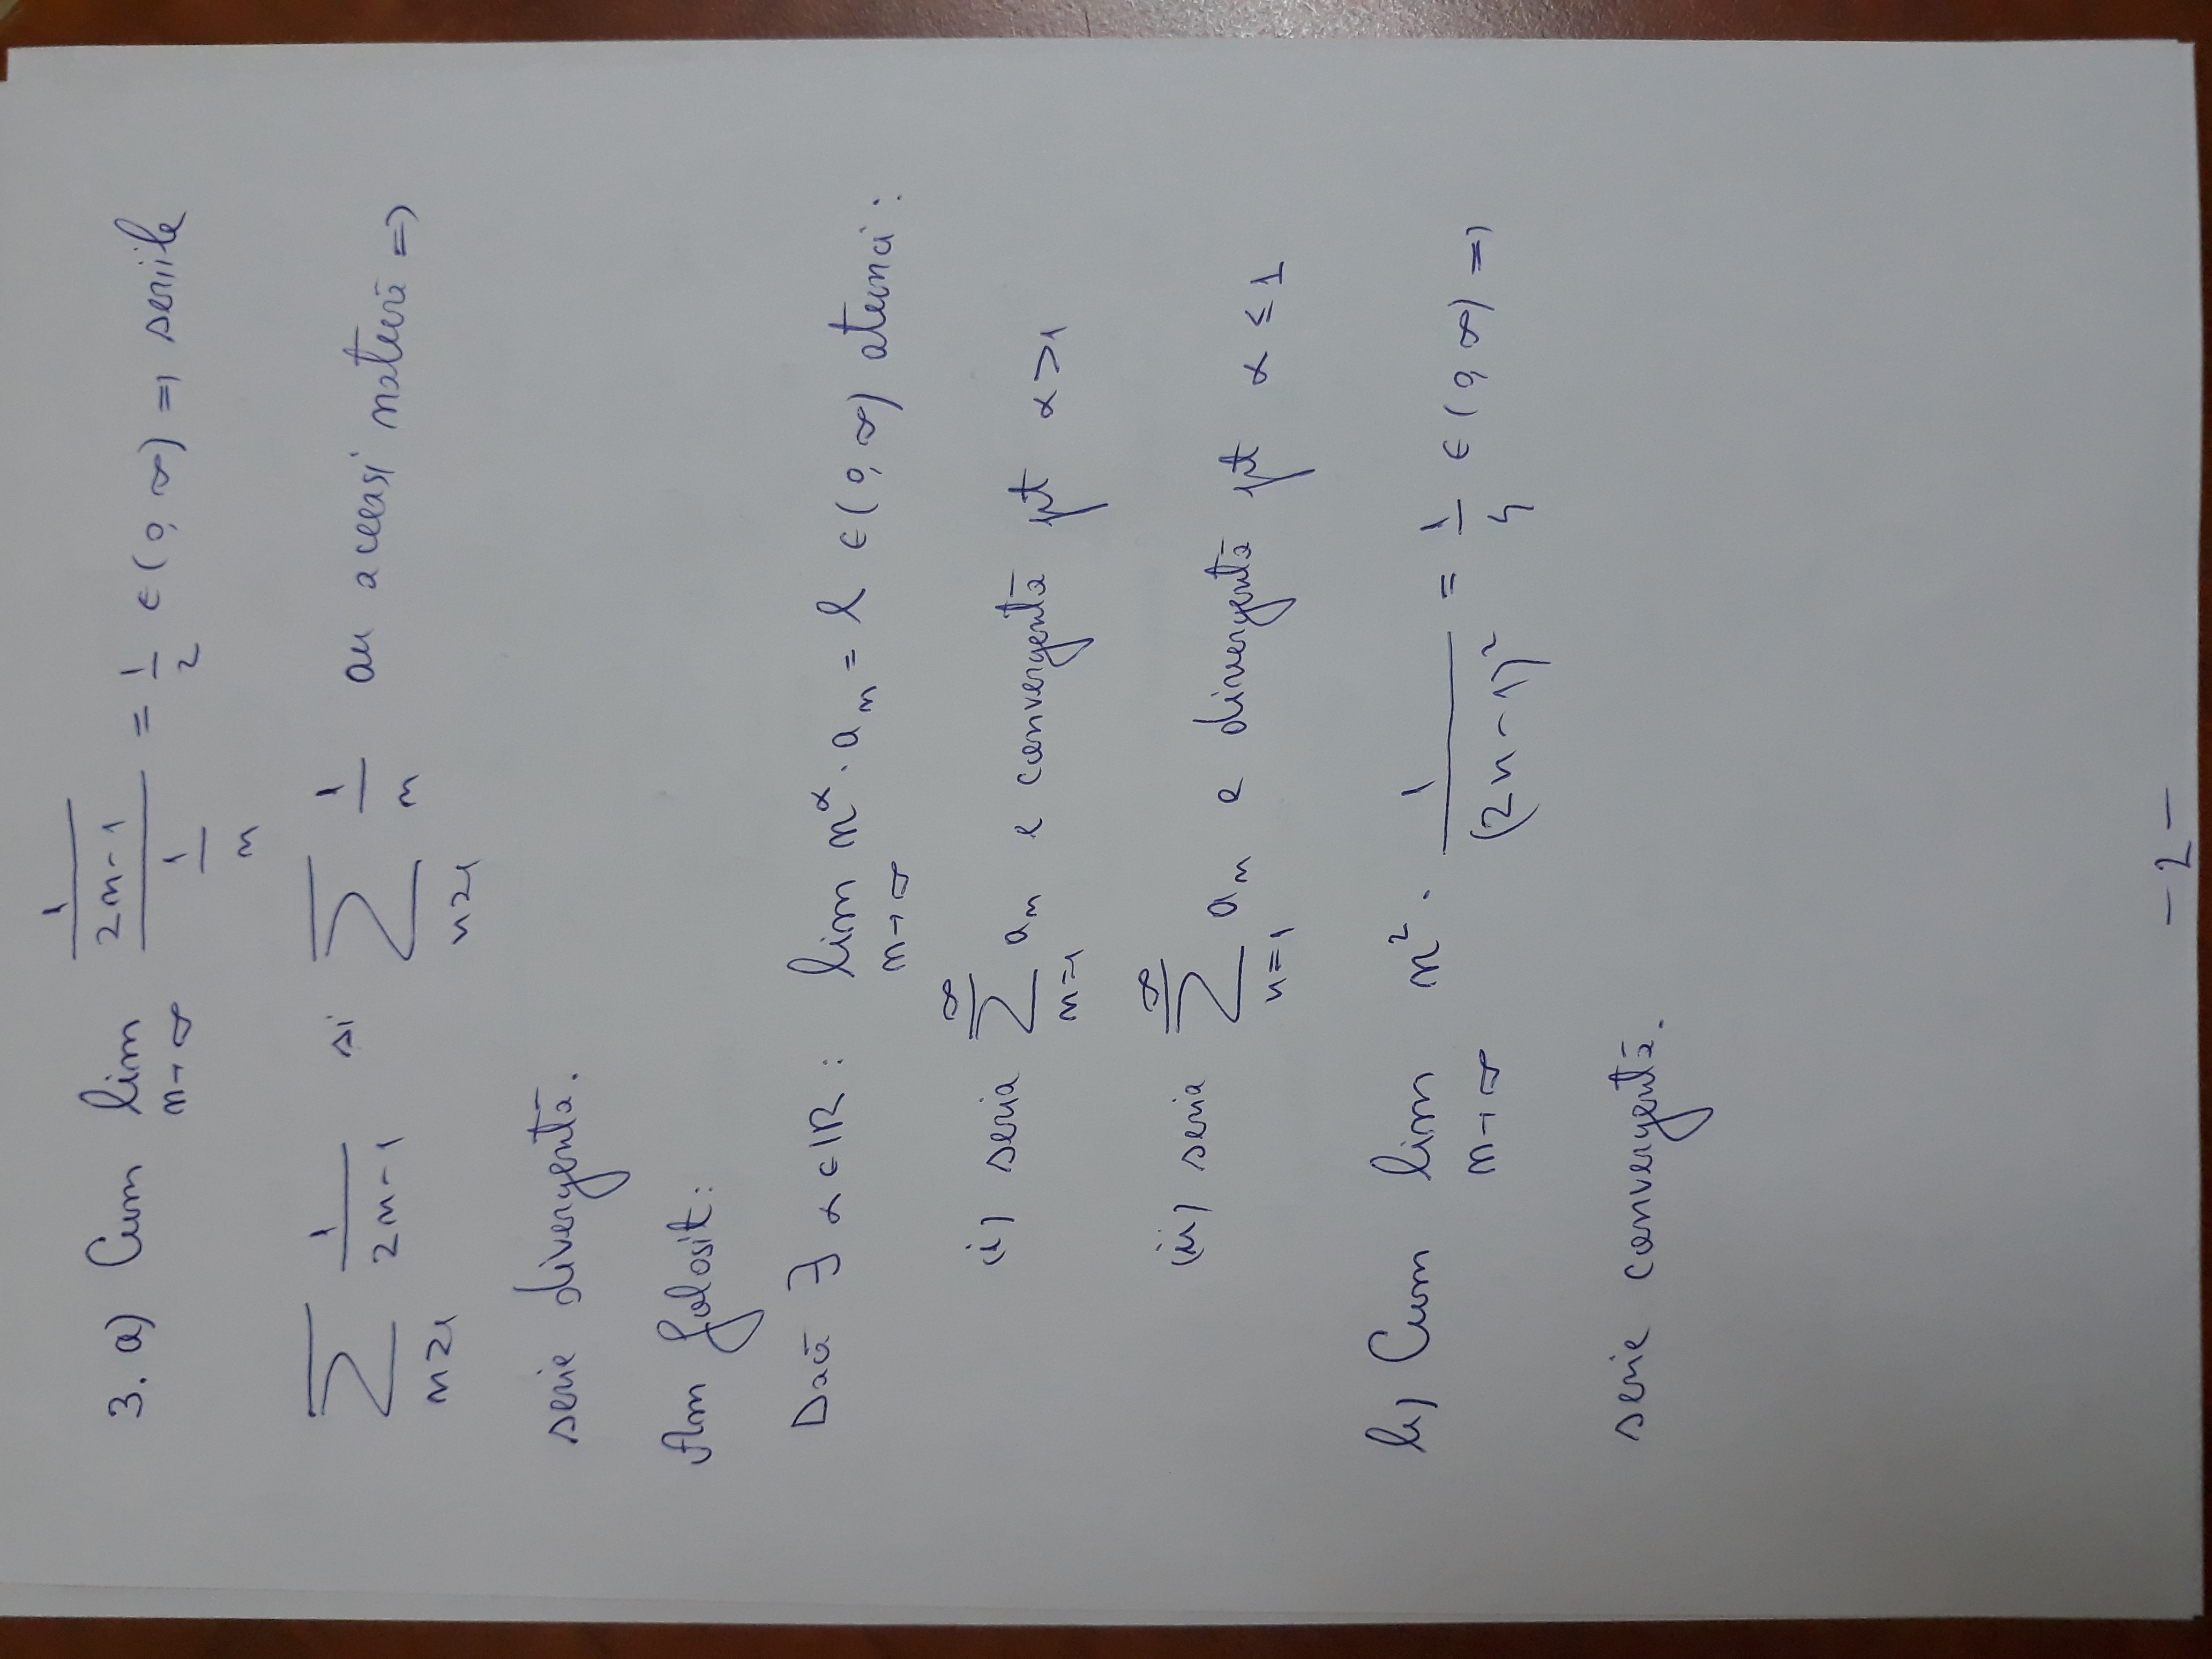 3. a) Cum lim_{n→∞} \frac{\frac{1}{2n-1}}{\frac{1}{n}} = \frac{1}{2} ∈ (0, ∞) ⇒ seriile
∑_{n≥1} \frac{1}{2n-1} si ∑_{n≥1} \frac{1}{n} au aceeasi natură ⇒
serie divergentă.
Am folosit:
Dacă ∃ α ∈ ℝ : lim_{n→∞} n^α · a_n = l ∈ (0, ∞) atunci :
(i) seria ∑_{n=1}^{∞} a_n e convergentă pt α > 1
(ii) seria ∑_{n=1}^{∞} a_n e divergentă pt α ≤ 1
b) Cum lim_{n→∞} n^2 · \frac{1}{(2n-1)^2} = \frac{1}{4} ∈ (0, ∞) ⇒
serie convergentă.
- 2 -